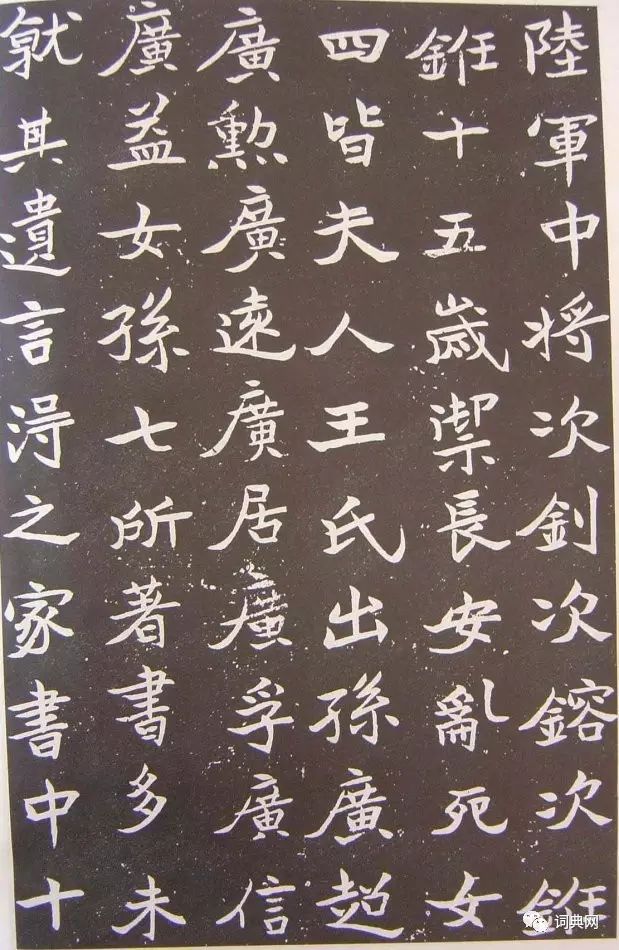 陸軍中将次釗次鎔次銋
銋十五歲禦長安亂死女
四皆夫人王氏出孫廣超
廣勳廣遠廣居廣孚廣信
廣益女孫七所著書多未
就其遺言淂之家書中十
词典网